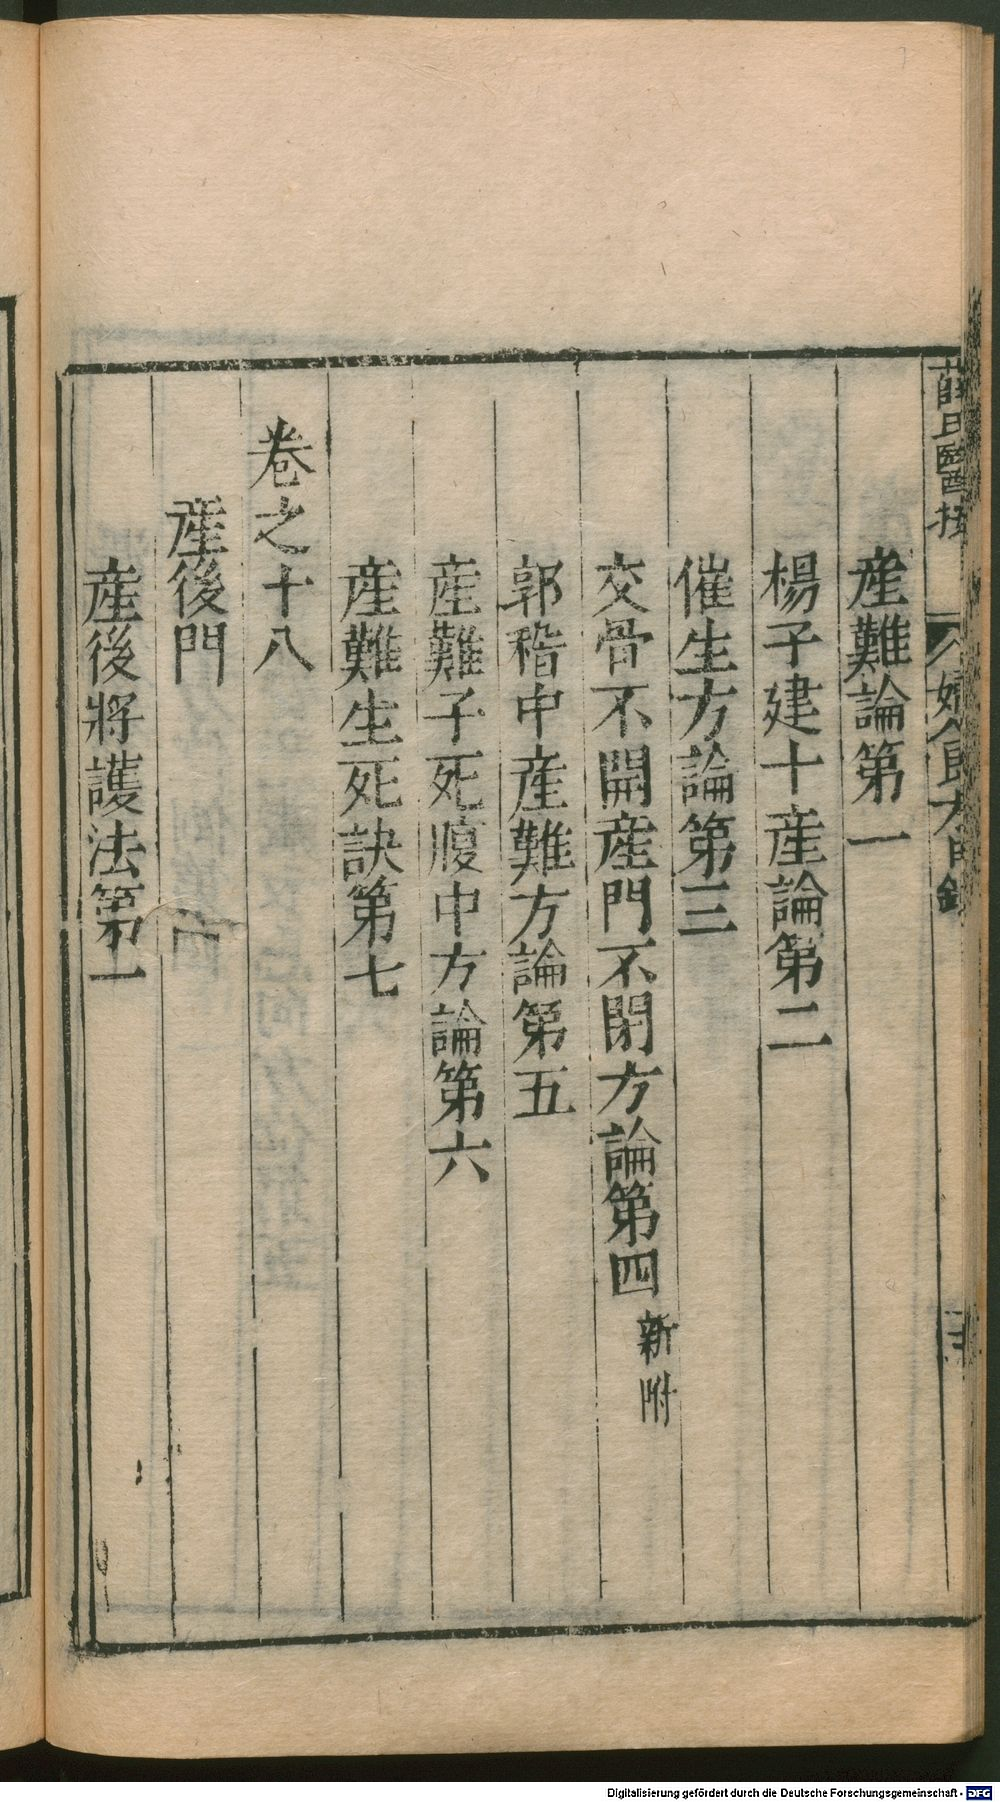 薛氏醫按
婦人良方目錄
産難論第一
楊子建十産論第二
催生方論第三
交骨不開産門不閉方論第四 新附
郭稽中産難方論第五
産難子死腹中方論第六
産難生死訣第七
卷之十八
産後門
産後將護法第一
Digitalisierung gefördert durch die Deutsche Forschungsgemeinschaft - DFG